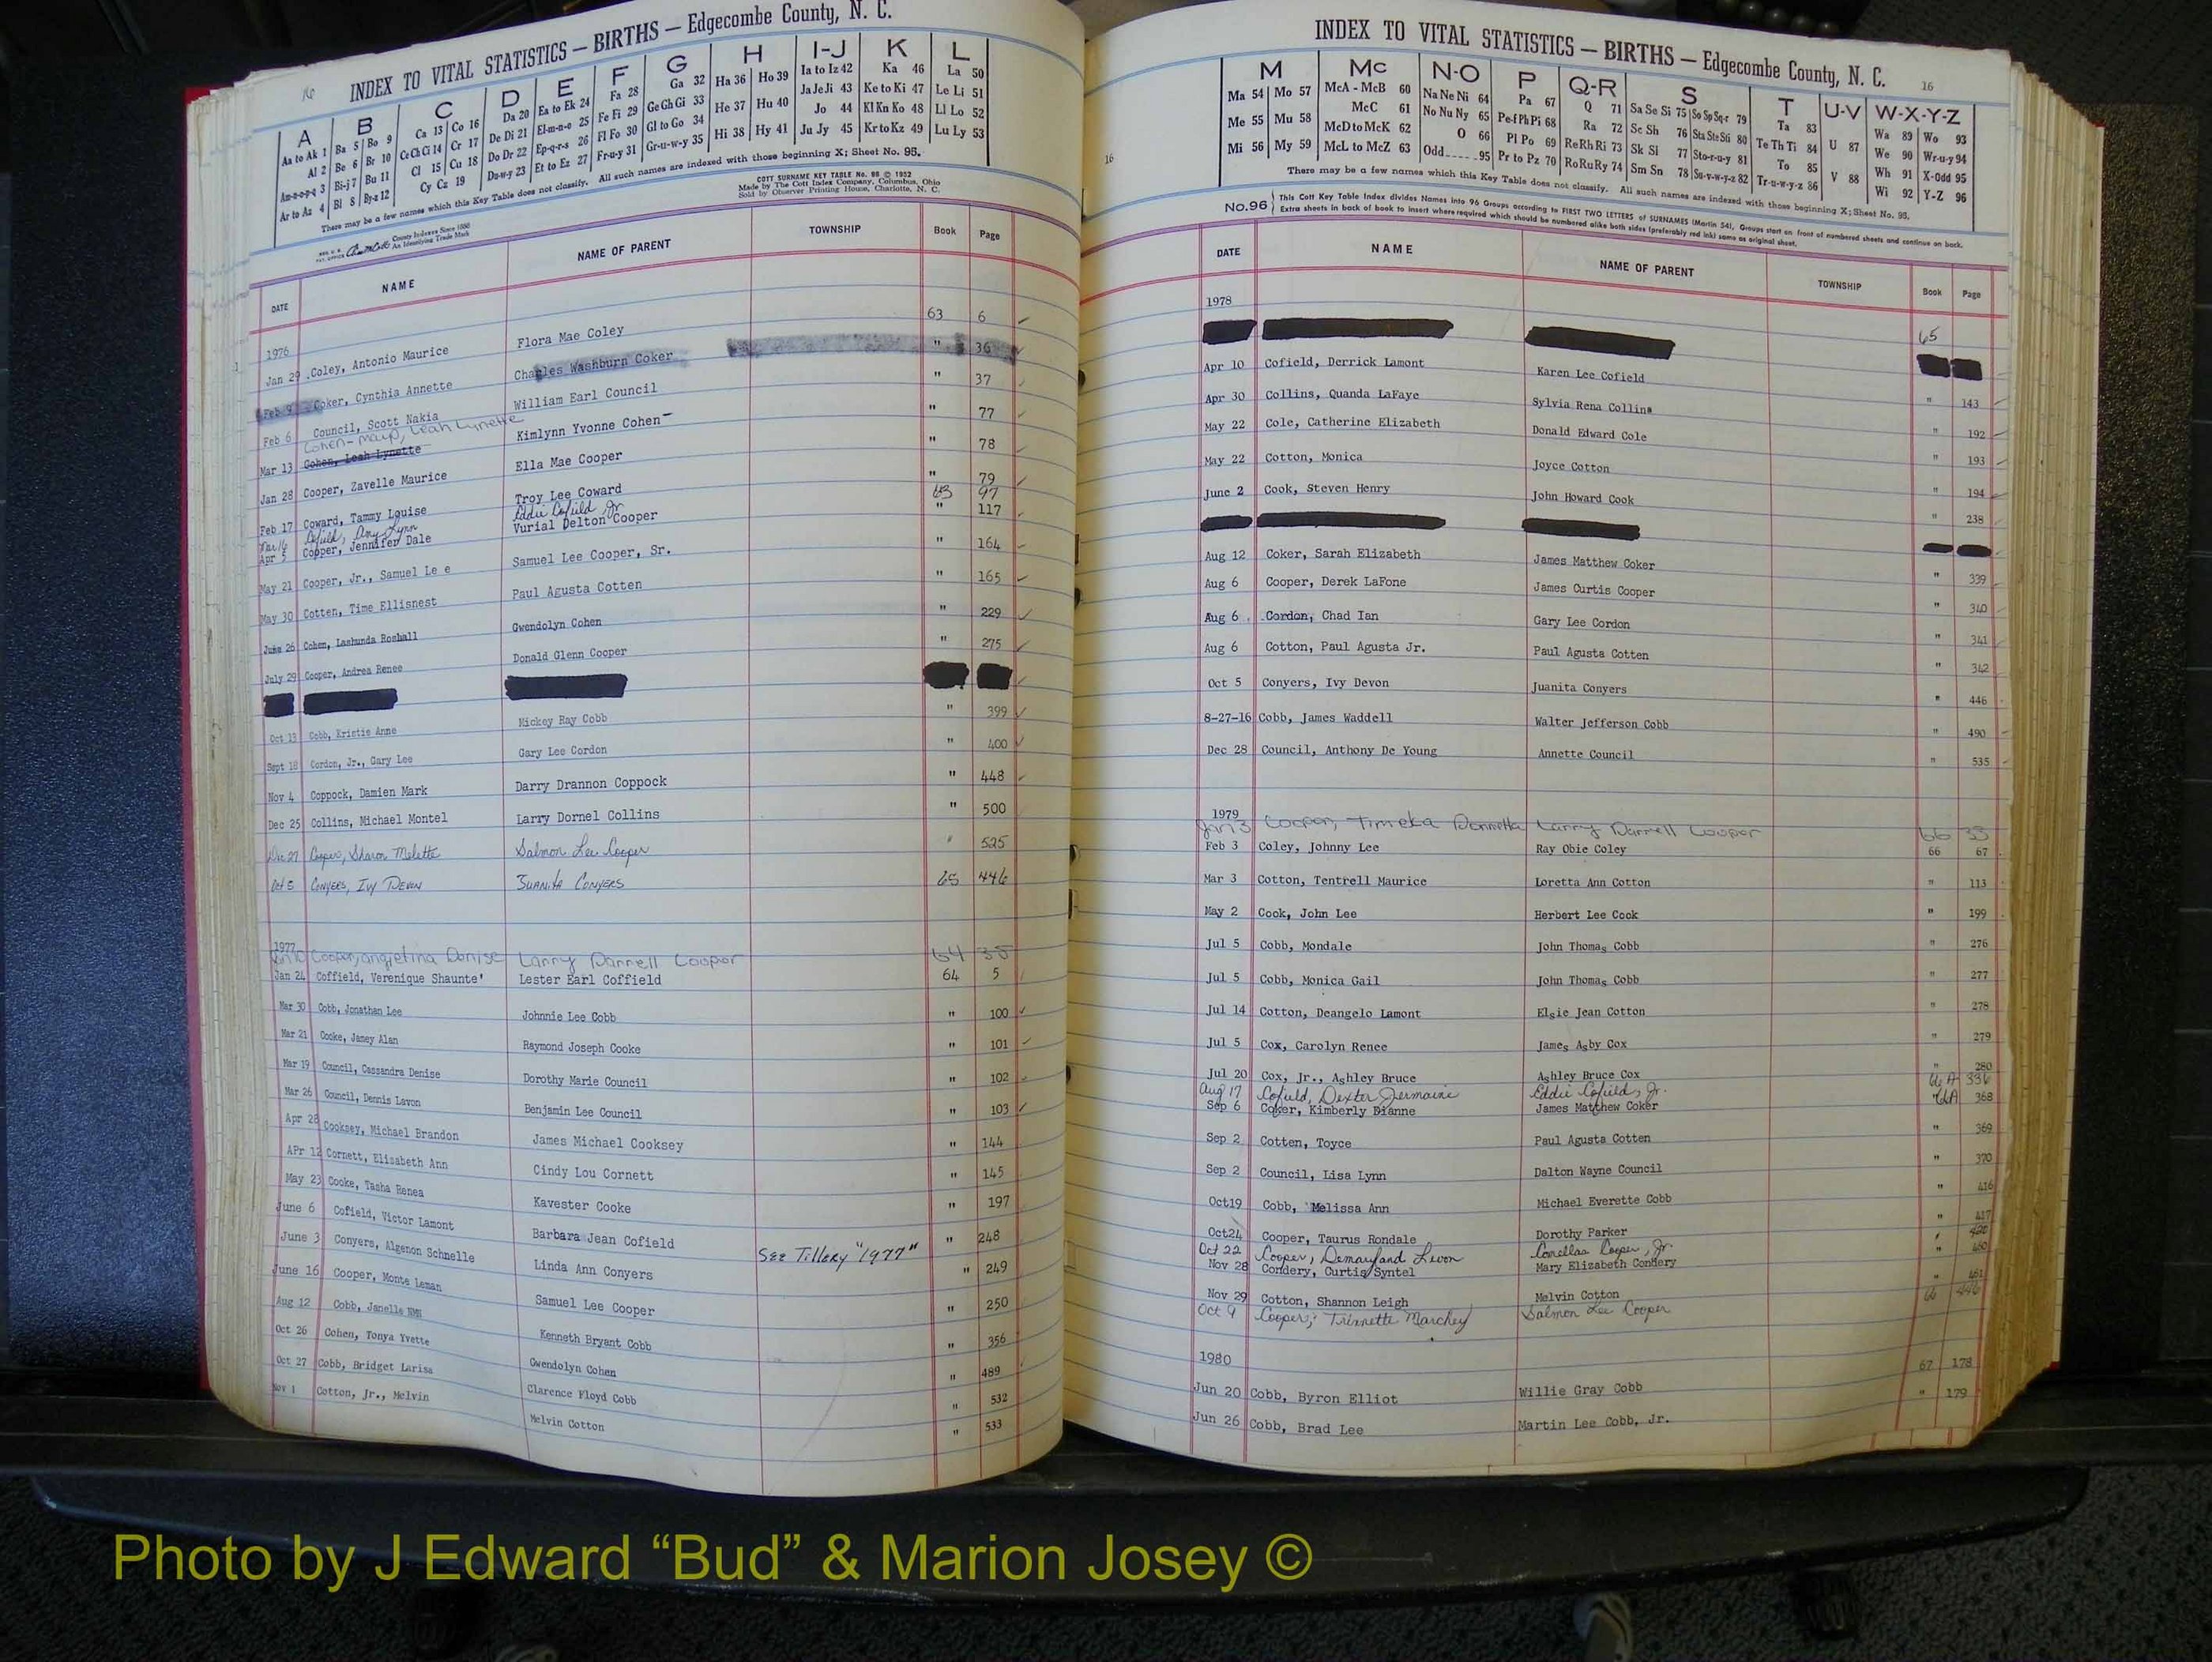 16
INDEX TO VITAL STATISTICS — BIRTHS — Edgecombe County, N. C.
A B C D E F G H I-J K L
Aa to Ak 1 Ba 5 Bo 9 Ca 13 Co 16 Da 20 Ea to Ek 24 Fa 28 Ga 32 Ha 36 Ho 39 Ia to Iz 42 Ka 46 La 50
Al 2 Be 6 Br 10 Ce Ch Ci 14 Cr 17 De Di 21 El-m-n-o 25 Fe Fi 29 Ge Gh Gi 33 He 37 Hu 40 Ja Je Ji 43 Ke to Ki 47 Le Li 51
Am-n-o-p-q 3 Bi-j 7 Bu 11 Cl 15 Cu 18 Do Dr 22 Ep-q-r-s 26 Fl Fo 30 Gl to Go 34 Hi 38 Hy 41 Jo 44 Kl Kn Ko 48 Ll Lo 52
Ar to Az 4 Bl 8 By-z 12 Cy Cz 19 Du-w-y 23 Et to Ez 27 Fr-u-y 31 Gr-u-w-y 35 Ju Jy 45 Kr to Kz 49 Lu Ly 53
There may be a few names which this Key Table does not classify. All such names are indexed with those beginning X; Sheet No. 95.
COTT SURNAME KEY TABLE No. 96 © 1952
Made by The Cott Index Company, Columbus, Ohio
Sold by Observer Printing House, Charlotte, N. C.
County Indexes Since 1888
An Identifying Trade Mark
DATE NAME NAME OF PARENT TOWNSHIP Book Page
1976
Jan 29 Coley, Antonio Maurice Flora Mae Coley 63 6
Feb 9 Coker, Cynthia Annette Charles Washburn Coker " 36
Feb 6 Council, Scott Nakia William Earl Council " 37
Cohen-Maup, Leah Lynette
Mar 13 Cohen, Leah Lynette Kimlynn Yvonne Cohen " 77
Jan 28 Cooper, Zavelle Maurice Ella Mae Cooper " 78
Feb 17 Coward, Tammy Louise Troy Lee Coward " 79
Mar 16 Cofield, Amy Lynn Eddie Cofield Jr 63 97
Apr 5 Cooper, Jennifer Dale Vurial Delton Cooper " 117
May 21 Cooper, Jr., Samuel Le e Samuel Lee Cooper, Sr. " 164
May 30 Cotten, Time Ellisnest Paul Agusta Cotten " 165
June 26 Cohen, Lashunda Roshall Gwendolyn Cohen " 229
July 29 Cooper, Andrea Renee Donald Glenn Cooper " 275
Oct 13 Cobb, Kristie Anne Mickey Ray Cobb " 399
Sept 18 Cordon, Jr., Gary Lee Gary Lee Cordon " 400
Nov 4 Coppock, Damien Mark Darry Drannon Coppock " 448
Dec 25 Collins, Michael Montel Larry Dornel Collins " 500
Dec 27 Cooper, Sharon Melette Salmon Lee Cooper " 525
Oct 5 Conyers, Ivy Devon Juanita Conyers 65 446
1977
Cooper, Angietina Denise Larry Darnell Cooper 64 35
Jan 24 Coffield, Verenique Shaunte' Lester Earl Coffield 64 5
Mar 30 Cobb, Jonathan Lee Johnnie Lee Cobb " 100
Mar 21 Cooke, Jamey Alan Raymond Joseph Cooke " 101
Mar 19 Council, Cassandra Denise Dorothy Marie Council " 102
Mar 26 Council, Dennis Lavon Benjamin Lee Council " 103
Apr 28 Cooksey, Michael Brandon James Michael Cooksey " 144
APr 12 Cornett, Elisabeth Ann Cindy Lou Cornett " 145
May 23 Cooke, Tasha Renea Kavester Cooke " 197
June 6 Cofield, Victor Lamont Barbara Jean Cofield See Tillery "1977" " 248
June 3 Conyers, Algenon Schnelle Linda Ann Conyers " 249
June 16 Cooper, Monte Leman Samuel Lee Cooper " 250
Aug 12 Cobb, Janelle NMN Kenneth Bryant Cobb " 356
Oct 26 Cohen, Tonya Yvette Gwendolyn Cohen " 489
Oct 27 Cobb, Bridget Larisa Clarence Floyd Cobb " 532
Nov 1 Cotton, Jr., Melvin Melvin Cotton " 533
INDEX TO VITAL STATISTICS — BIRTHS — Edgecombe County, N. C. 16
16
M Mc N-O P Q-R S T U-V W-X-Y-Z
Ma 54 Mo 57 McA - McB 60 Na Ne Ni 64 Pa 67 Q 71 Sa Se Si 75 So Sp Sq-r 79 Ta 83 U 87 Wa 89 Wo 93
Me 55 Mu 58 McC 61 No Nu Ny 65 Pe-f Ph Pi 68 Ra 72 Sc Sh 76 Sta Ste Sti 80 Te Th Ti 84 We 90 Wr-u-y 94
Mi 56 My 59 McD to McK 62 O 66 Pl Po 69 Re Rh Ri 73 Sk Sl 77 Sto-r-u-y 81 To 85 V 88 Wh 91 X-Odd 95
McL to McZ 63 Odd 95 Pr to Pz 70 Ro Ru Ry 74 Sm Sn 78 Su-v-w-y-z 82 Tr-u-w-y-z 86 Wi 92 Y-Z 96
There may be a few names which this Key Table does not classify. All such names are indexed with those beginning X; Sheet No. 95.
No.96 This Cott Key Table Index divides Names into 96 Groups according to FIRST TWO LETTERS of SURNAMES (Martin 54). Groups start on front of numbered sheets and continue on back.
Extra sheets in back of book to insert where required which should be numbered alike both sides (preferably red ink) same as original sheet.
DATE NAME NAME OF PARENT TOWNSHIP Book Page
1978
65
Apr 10 Cofield, Derrick Lamont Karen Lee Cofield " 143
Apr 30 Collins, Quanda LaFaye Sylvia Rena Collins " 192
May 22 Cole, Catherine Elizabeth Donald Edward Cole " 193
May 22 Cotton, Monica Joyce Cotton " 194
June 2 Cook, Steven Henry John Howard Cook " 238
Aug 12 Coker, Sarah Elizabeth James Matthew Coker " 339
Aug 6 Cooper, Derek LaFone James Curtis Cooper " 340
Aug 6 Cordon, Chad Ian Gary Lee Cordon " 341
Aug 6 Cotton, Paul Agusta Jr. Paul Agusta Cotten " 342
Oct 5 Conyers, Ivy Devon Juanita Conyers " 446
8-27-16 Cobb, James Waddell Walter Jefferson Cobb " 490
Dec 28 Council, Anthony De Young Annette Council " 535
1979
Jan 3 Cooper, Timeka Donnetta Larry Darnell Cooper 66 33
Feb 3 Coley, Johnny Lee Ray Obie Coley 66 67
Mar 3 Cotton, Tentrell Maurice Loretta Ann Cotton " 113
May 2 Cook, John Lee Herbert Lee Cook " 199
Jul 5 Cobb, Mondale John Thomas Cobb " 276
Jul 5 Cobb, Monica Gail John Thomas Cobb " 277
Jul 14 Cotton, Deangelo Lamont Elsie Jean Cotton " 278
Jul 5 Cox, Carolyn Renee James Asby Cox " 279
Jul 20 Cox, Jr., Ashley Bruce Ashley Bruce Cox " 280
Aug 17 Cofield, Dexter Jermaine Eddie Cofield, Jr. 66A 336
Sep 6 Coker, Kimberly Dianne James Matthew Coker "66A 368
Sep 2 Cotten, Toyce Paul Agusta Cotten " 369
Sep 2 Council, Lisa Lynn Dalton Wayne Council " 370
Oct19 Cobb, Melissa Ann Michael Everette Cobb " 416
Oct24 Cooper, Taurus Rondale Dorothy Parker " 417
Oct 22 Cooper, Demaryland Levon Conellas Cooper, Jr. "
Nov 28 Condery, Curtis Syntel Mary Elizabeth Condery " 460
Nov 29 Cotton, Shannon Leigh Melvin Cotton " 461
Oct 9 Cooper, Trinnette Marchey Salmon Lee Cooper 66
1980
Jun 20 Cobb, Byron Elliot Willie Gray Cobb 67 178
Jun 26 Cobb, Brad Lee Martin Lee Cobb, Jr. " 179
Photo by J Edward “Bud” & Marion Josey ©